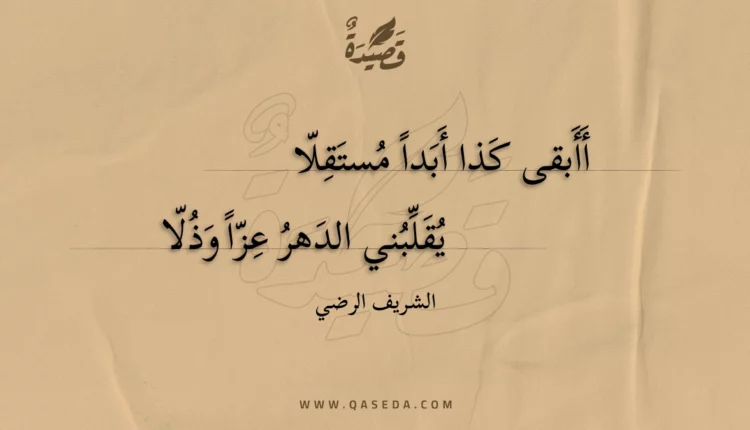 قَصِيدَةٌ
أَأَبقى كَذا أَبَداً مُستَقِلّا
يُقَلِّبُني الدَهرُ عِزّاً وَذُلّا
الشريف الرضي
WWW.QASEDA.COM